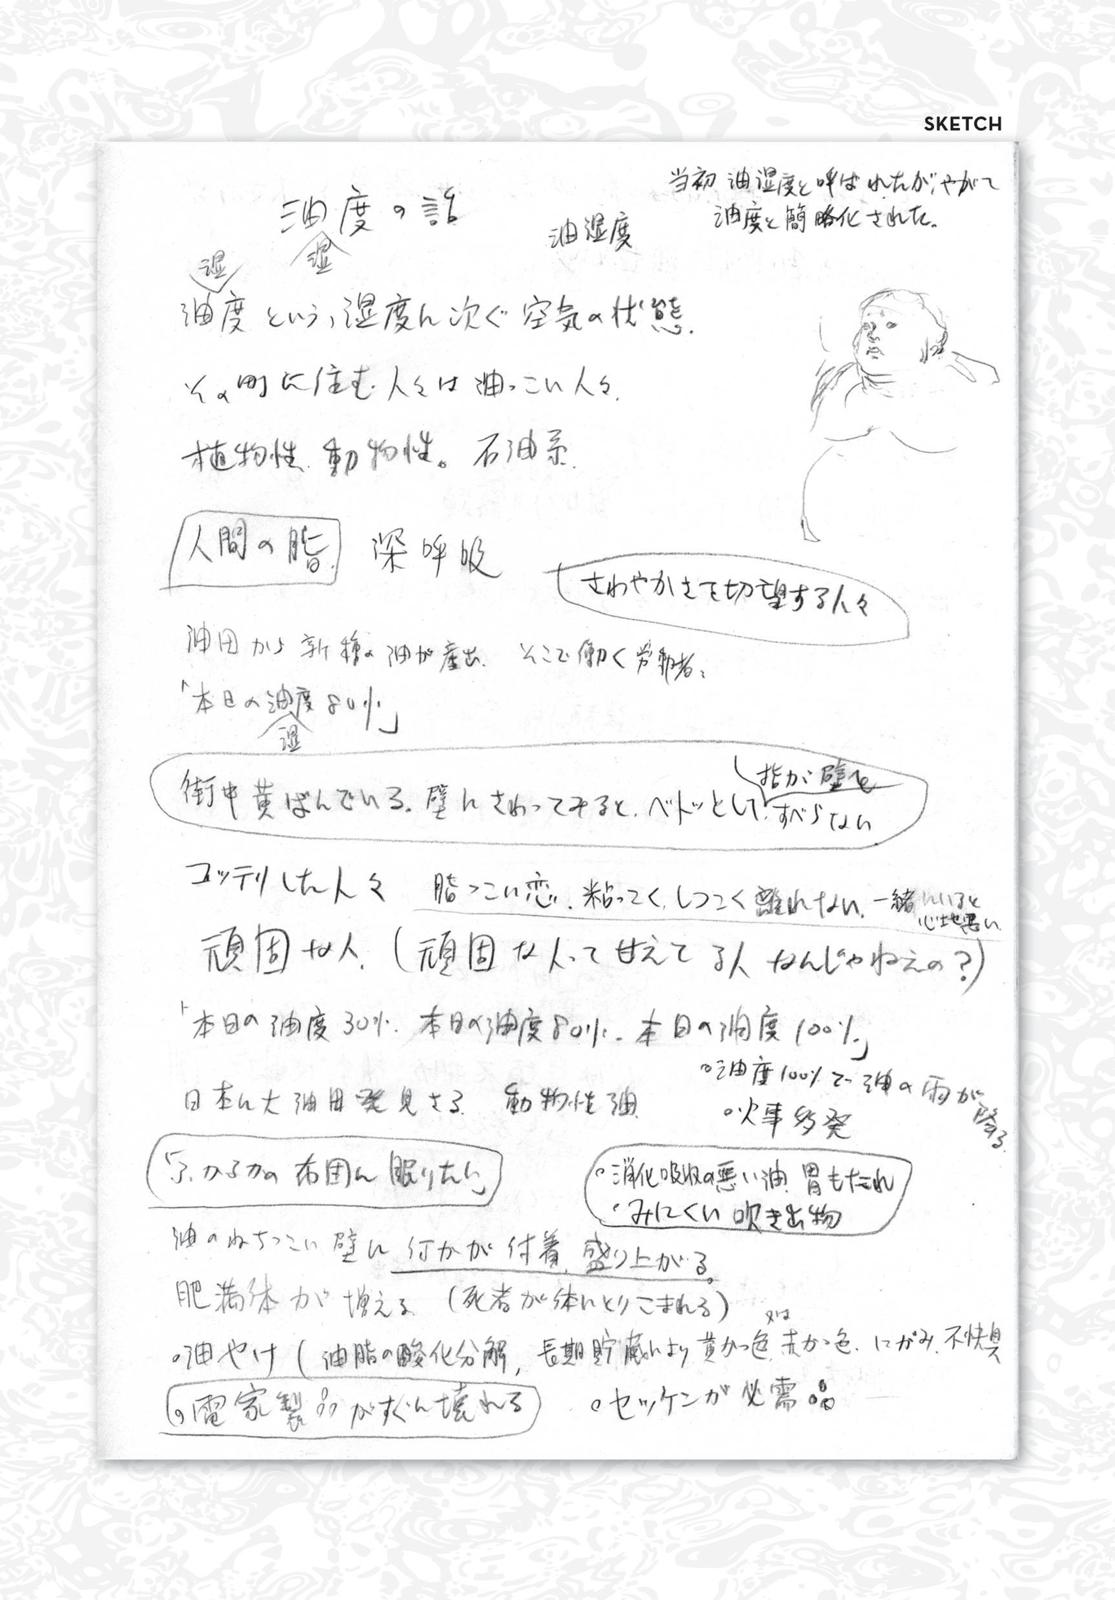 SKETCH
当初 油湿度と呼ばれたが、やがて
油度と簡略化された。
油度の話
湿
油湿度
湿
油度という、湿度に次ぐ空気の状態。
その町に住む人々は油っこい人々。
植物性、動物性。石油系。
人間の脂。 深呼吸
さわやかさを切望する人々
油田から新種の油が産出。そこで働く労働者。
「本日の油度80%」
湿
指が壁を
街中黄ばんでいる。壁にさわってみると、ベトッとして、すべらない
コッテリした人々 脂っこい恋、粘ってく、しつこく離れない、一緒にいると
心地悪い
頑固な人。(頑固な人って甘えてる人なんじゃねえの?)
「本日の油度30%、本日の油度80%、本日の油度100%」
日本に大油田発見さる 動物性油
○油度100%で油の雨が降る。
○火事多発
「ふかふかの布団に眠りたい」
○消化吸収の悪い油 胃もたれ
○みにくい吹き出物
油のねちっこい壁に何かが付着、盛り上がる。
肥満体が増える (死者が体にとりこまれる)
又は
○油やけ(油脂の酸化分解、長期貯蔵により黄かっ色、赤かっ色、にがみ、不快臭
○電家製品がすぐに壊れる
○セッケンが必需品